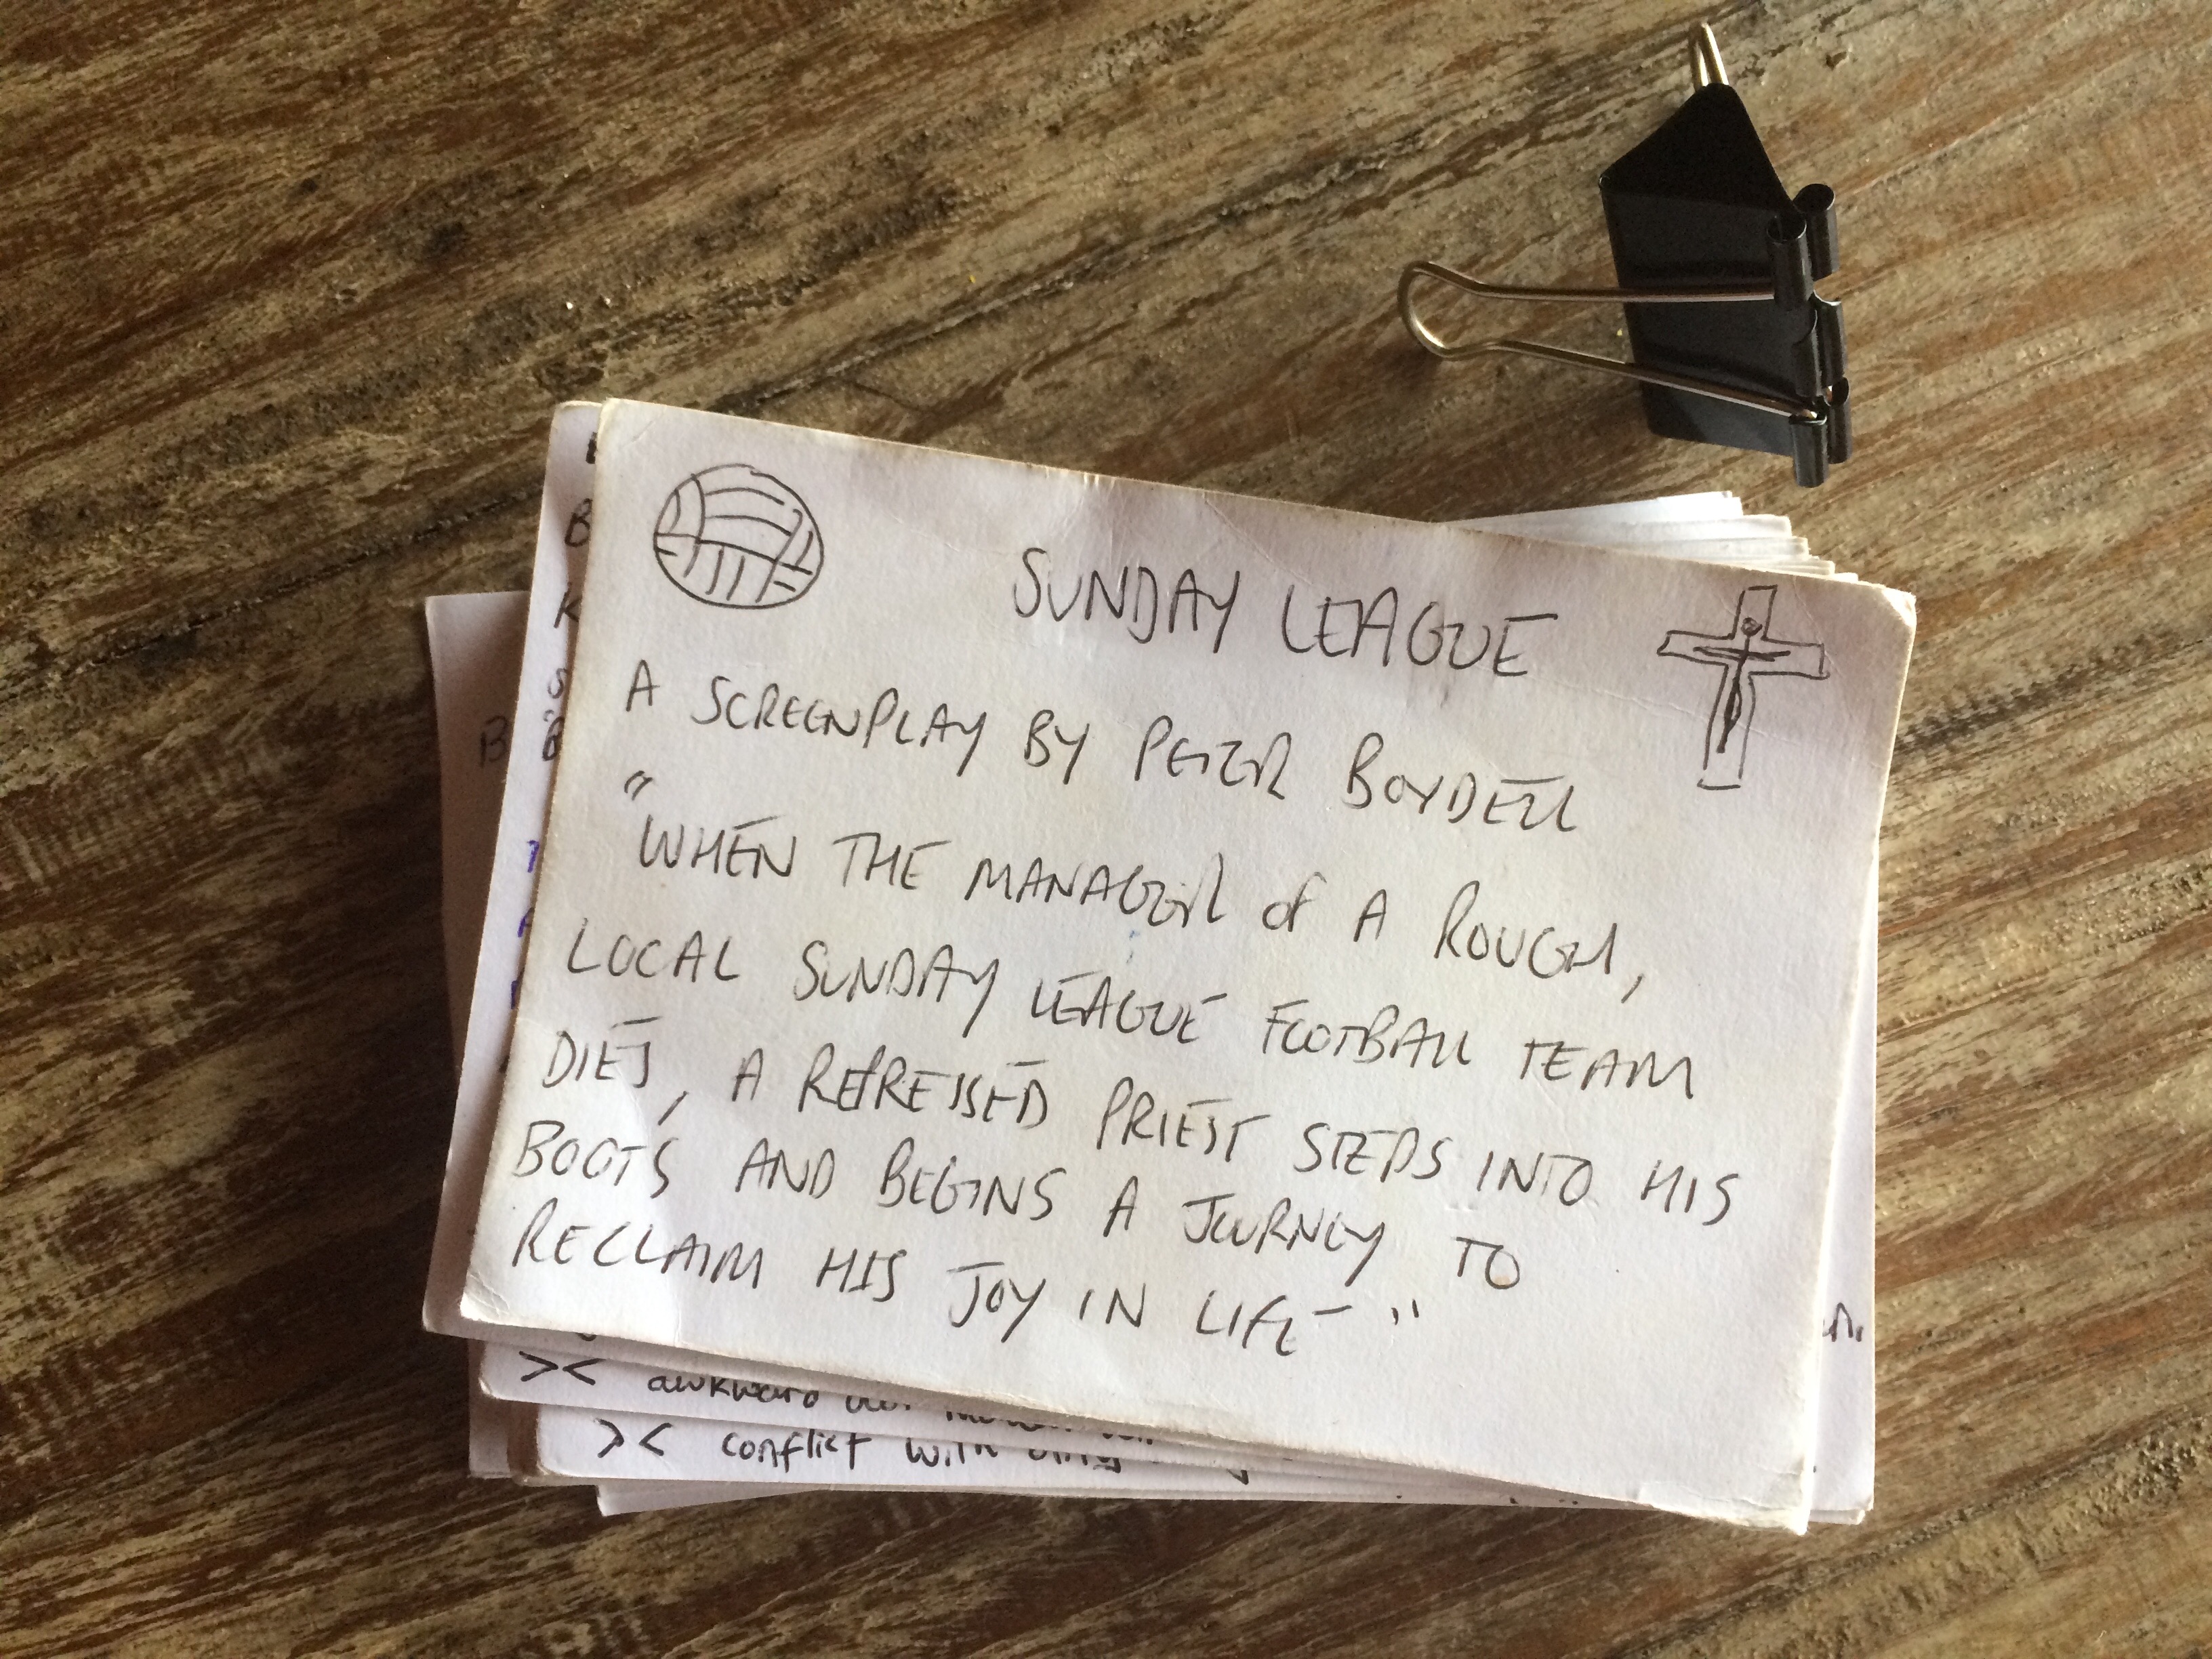 SUNDAY LEAGUE
A SCREENPLAY BY PETER BOYDELL
"WHEN THE MANAGER of A ROUGH,
LOCAL SUNDAY LEAGUE FOOTBALL TEAM
DIES, A REPRESSED PRIEST STEPS INTO HIS
BOOTS AND BEGINS A JOURNEY TO
RECLAIM HIS JOY IN LIFE"
>< awkward
>< conflict with